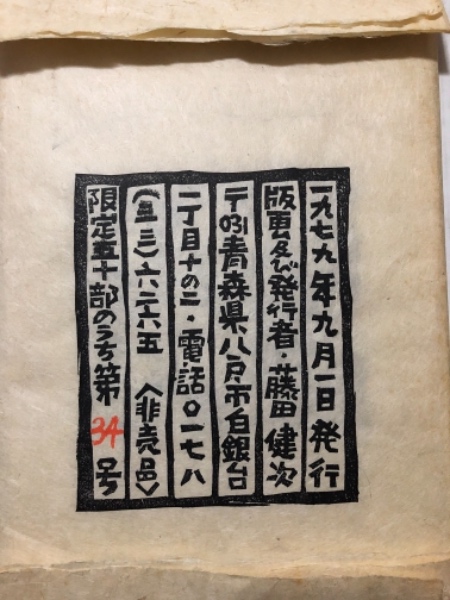 一九七九年九月一日発行
版画及び発行者・藤田健次
〒031青森県八戸市白銀台
一丁目十の二・電話〇一七八
(三三)六二六五 〈非売品〉
限定五十部のうち第34号